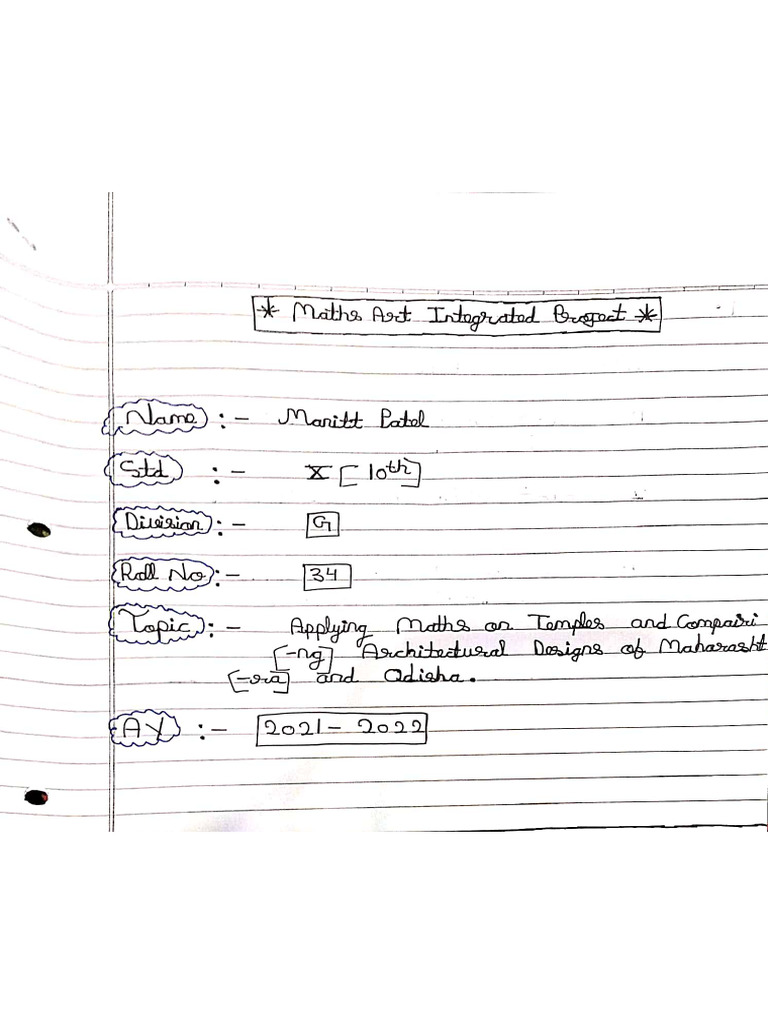 * Maths Art Integrated Project *
Name :- Maritt Patel
Std :- X [10th]
Division :- G
Roll No :- 34
Topic :- Applying Maths on Temples and Compairi
[-ng] Architectural Designs of Maharasht
[-ra] and Odisha.
AY :- 2021- 2022